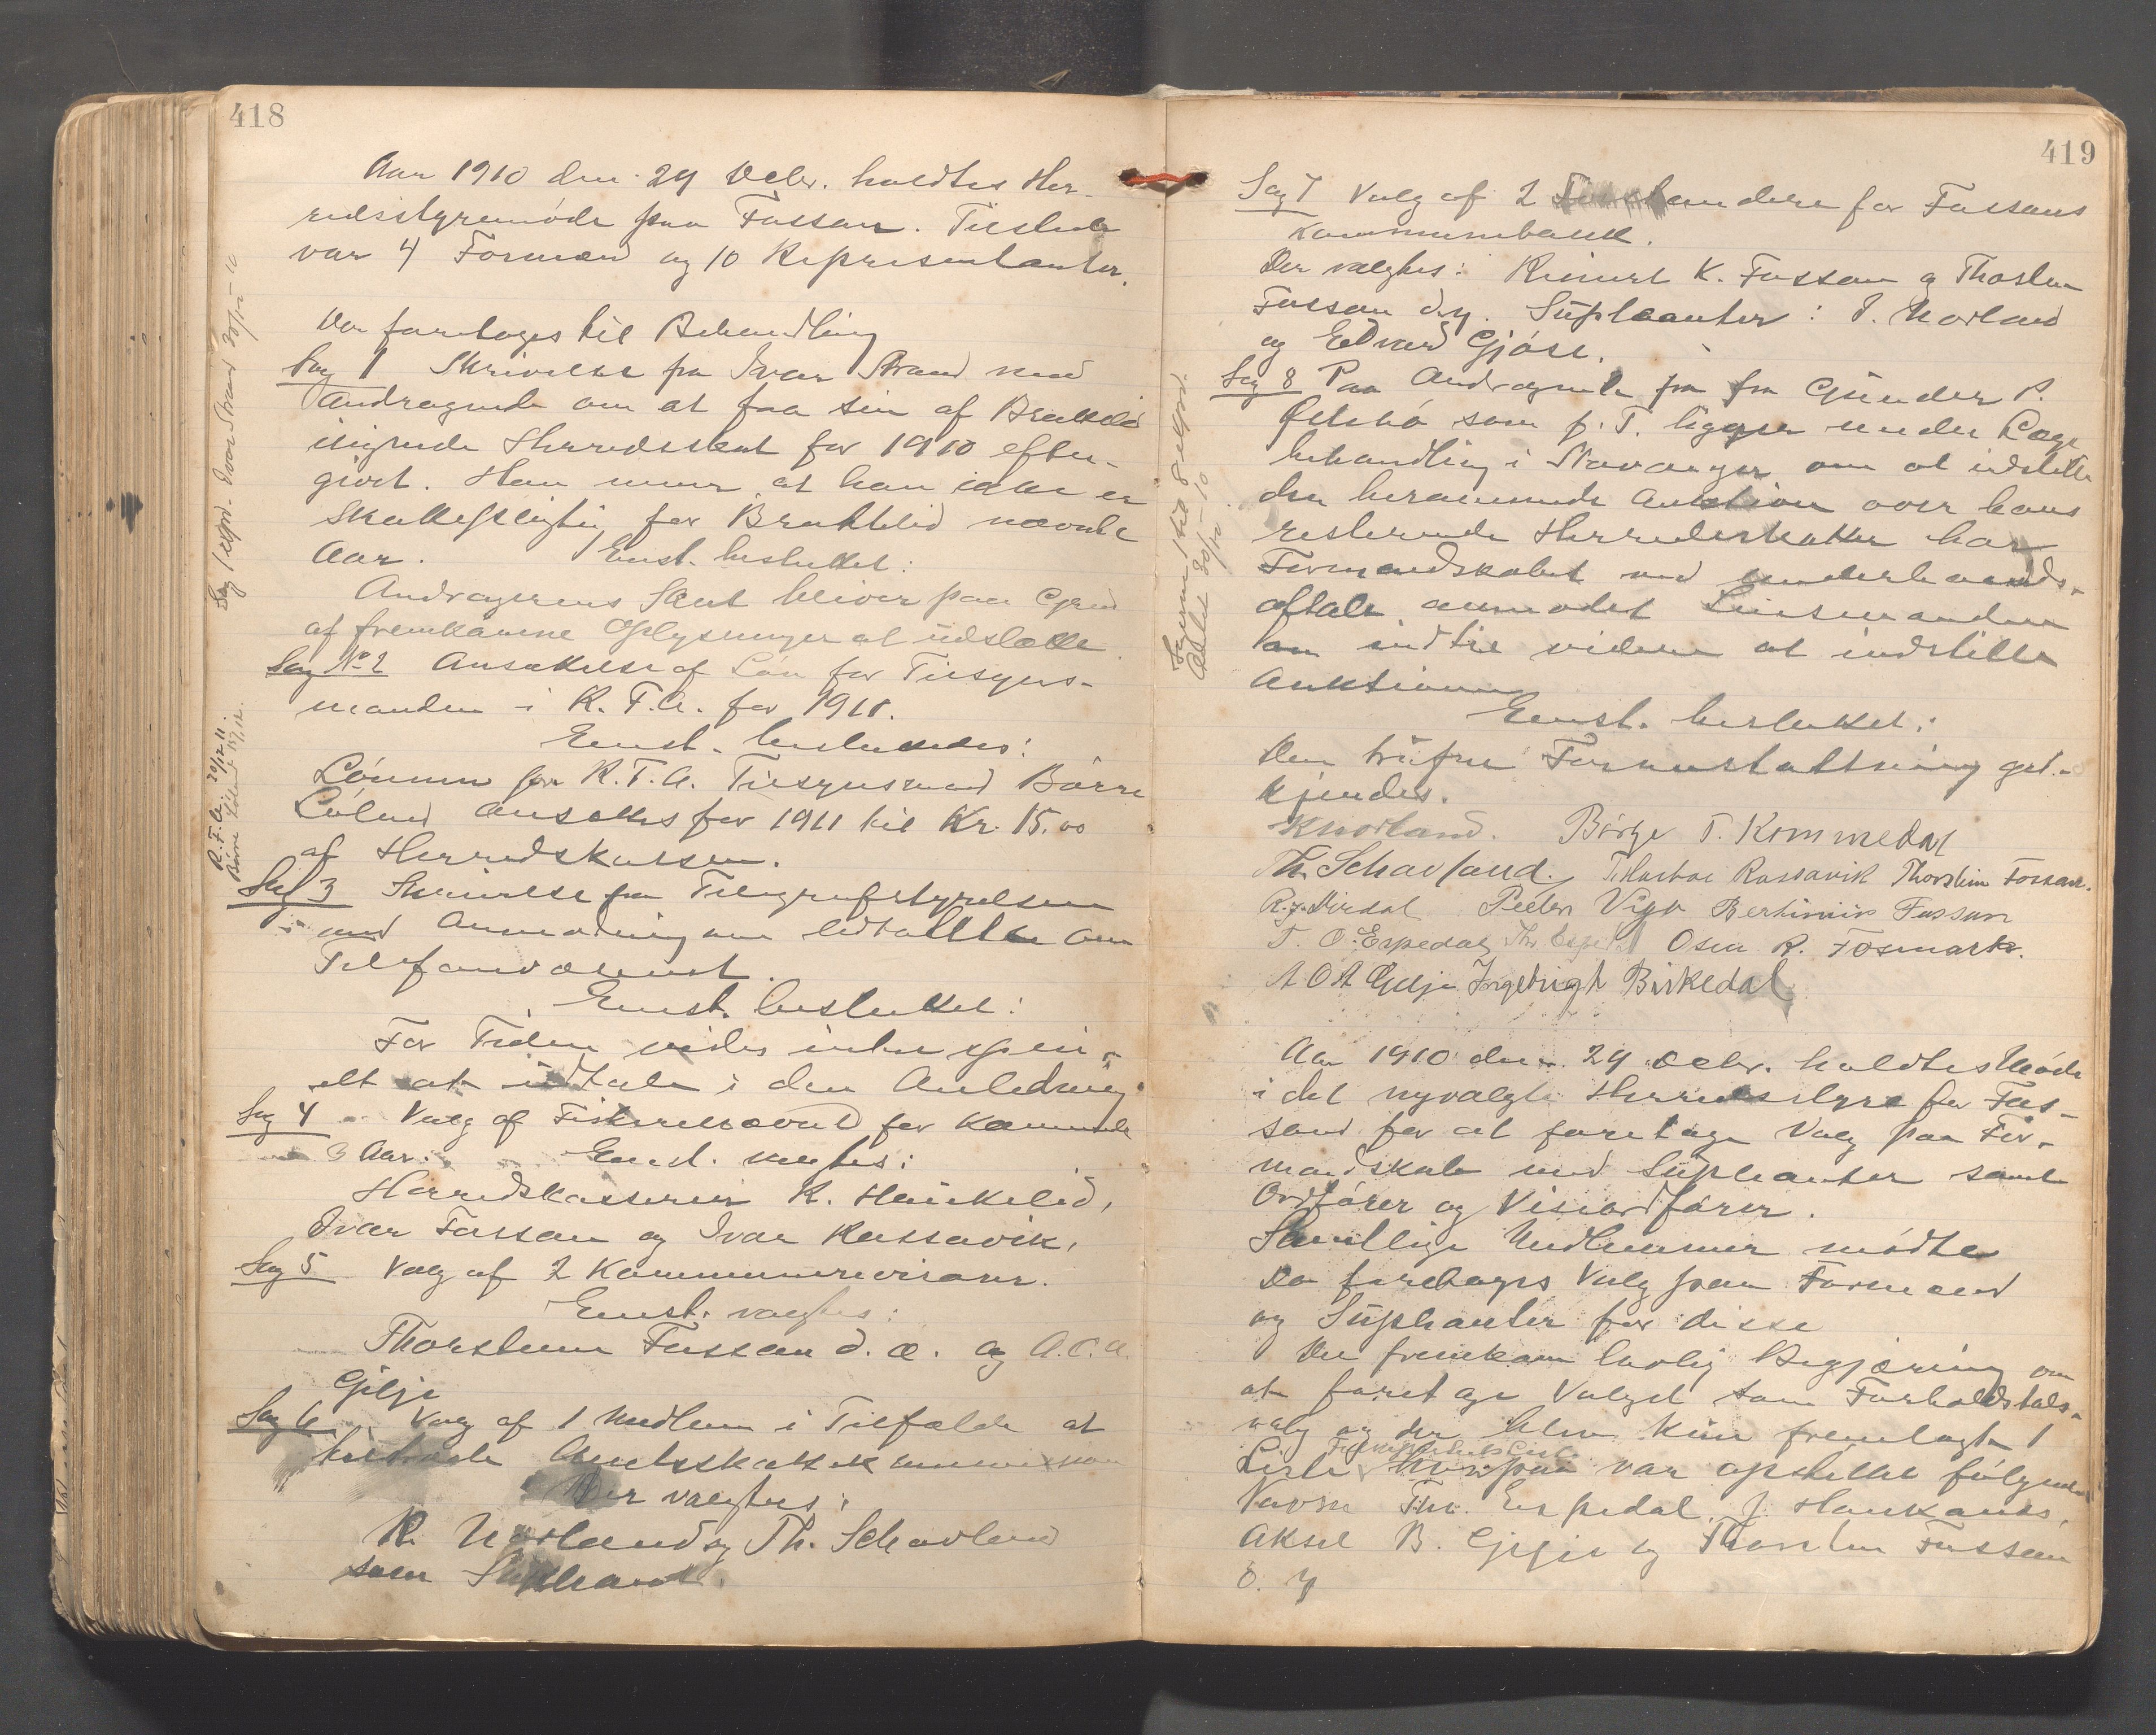 418
Aar 1910 den 29 Decbr. holdtes Her-
redsstyremøde paa Fossan. Tilstede
var 4 Formænd og 10 Repræsentanter.
Der foretoges til Behandling
Sag 1 Skrivelse fra Ivar Strand med
Andragende om at faa sin af Brattelid
Herredsskat for 1910 efter-
givet. Han mener at han ikke er
Skattepligtig for Brattelid nævnte
Aar. Enst. besluttet:
Andragerens Skat bliver paa Grund
af fremkomne Oplysninger at udslette.
Sag No 2 Ansættelse af Løn for Tilsyns-
manden i R. F. A. for 1911.
Enst. besluttedes:
Lønnen for R. F. A. Tilsynsmand Børre
Løland ansættes for 1911 til Kr. 15.00
af Herredskassen.
Sag 3 Skrivelse fra Telegrafstyrelsen
med Anmodning om Udtallelse om
Telefonvæsenet.
Enst. besluttet:
For Tiden vides intet speci-
elt at udtale i den Anledning.
Sag 4 Valg af Fiskerilsævnd for kommende
3 Aar. Enst. valgtes:
Herredskasserer R. Haukelid,
Ivar Fossan og Ivar Rossavik.
Sag 5 Valg af 2 Kommunerevisorer.
Enst. valgtes:
Thorstein Fossan d. æ. og A.O.A.
Gilje
Sag 6 Valg af 1 Medlem i Tilfælde at
tiltræde Amtsskattekommission
Der valgtes:
K. Norland og Th. Schavland
som Suppleant.
Sag 1 exped. Ivar Strand 30/12-10
R. F. A. 30/12 11.
Børre Løland
419
Sag 7 Valg af 2 for Fossans
Kommunebank.
Der valgtes: Reinert K. Fossan og Thorstein
Fossan d.y. Supleanter: T. Norland
og Edvard Gjøse.
Sag 8 Paa Andragende fra fra Gunder P.
som p. T. ligger under Læge
behandling i Stavanger om at indstille
den berammede Auktion over hans
resterende Herredsskatter har
Formandskabet ved underhaands-
aftale anmodet Lensmanden
om indtil videre at indstille
Auktionen
Enst. besluttet:
Den trufne Foranstaltning god-
kjendes.
K Norland. Børge T. Kommedal
Th. Schavland. T. Husebøe Rossavik Thorstein Fossan.
R. J. Mirdal Peder Viga Bertinius Fossan
T. O. Espedal Th. Espedal Osea R. Fosmark.
A O A Gilje Ingebrigt Birkedal
Aar 1910 den 29 Decbr. holdtes Møde
i det nyvalgte Herredsstyre for Fos-
sand for at foretage Valg paa For-
mandskab med Supleanter samt
Ordfører og Viseordfører.
Samtlige Medlemmer mødte
Da foretoges Valg paa Formænd
og Supleanter for disse
Der fremkom lovlig Begjæring om
at foretage Valget som Forholdstals-
valg og der blev kun fremlagt 1
Liste hvorpaa var opstillet følgende
Navne Thr. Espedal, J. Haukaas,
Aksel B. Gilje og Thorstein Fossan
d. y